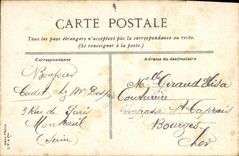 CARTE POSTALE
Tous les pays étrangers n'acceptent pas la correspondance au recto.
(Se renseigner à la poste)
Correspondance
Adresse du destinataire
Bonjour
Cadet chez Mr
3 Rue de Paris
Montreuil
Seine
Melle Giraud Elisa
Couturière
Impasse St Caprais
Bourges
Cher